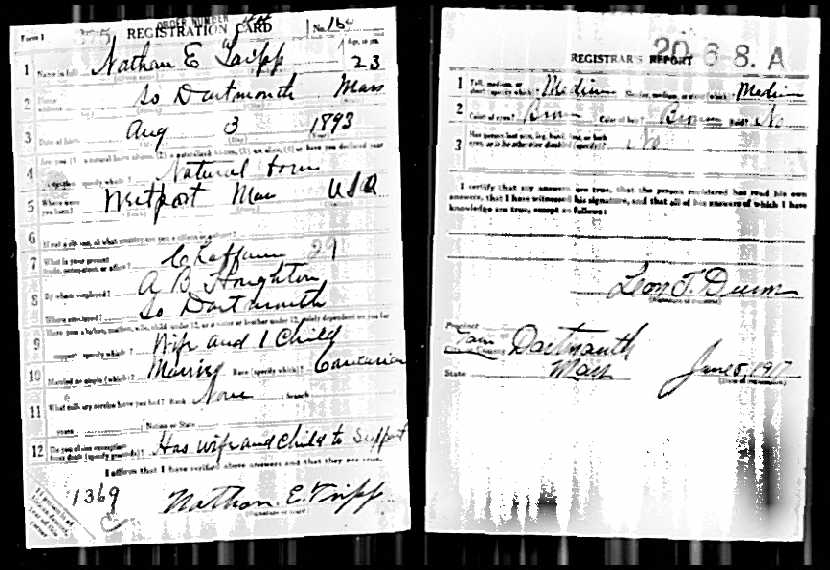 Form 1
ORDER NUMBER
REGISTRATION CARD
No. 160
Age, in yrs.
1 Name in full Nathan E Tripp 23
2 Home address So Dartmouth Mass
3 Date of birth Aug 3 1893
4 Are you (1) a natural born citizen, (2) a naturalized citizen, (3) an alien, (4) or have you declared your
specify which? Natural born
5 Where were you born? Westport Mass USA
6 If not a citizen, of what country are you a citizen or subject?
7 What is your present trade, occupation, or office? Chaffeur 29
8 By whom employed? A B Houghton
Where employed? So Dartmouth
9 Have you a father, mother, wife, child under 12, or a sister or brother under 12, solely dependent on you for
support specify which? Wife and 1 Child
10 Married or single (which)? Married Race (specify which)? Caucasian
11 What military service have you had? Rank None branch
years Nation or State
12 Do you claim exemption from draft (specify grounds)? Has wife and child to Support
I affirm that I have verified above answers and that they are true.
1369
Nathan. E. Tripp
20 6 8. A
REGISTRAR'S REPORT
1 Tall, medium, or short (specify which)? Medium Slender, medium, or stout (which)? Medium
2 Color of eyes? Brown Color of hair? Brown Bald? No
3 Has person lost arm, leg, hand, foot, or both eyes, or is he otherwise disabled (specify)? No
I certify that my answers are true, that the person registered has read his own
answers, that I have witnessed his signature, and that all of his answers of which I have
knowledge are true, except as follows:
Precinct
Town Dartmouth
State Mass
June 5, 1917
(Date of registration)